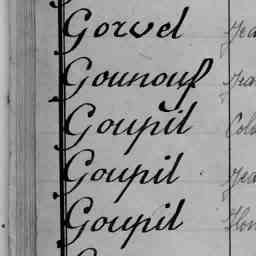 Gorvel
Gounouf
Goupil
Goupil
Goupil